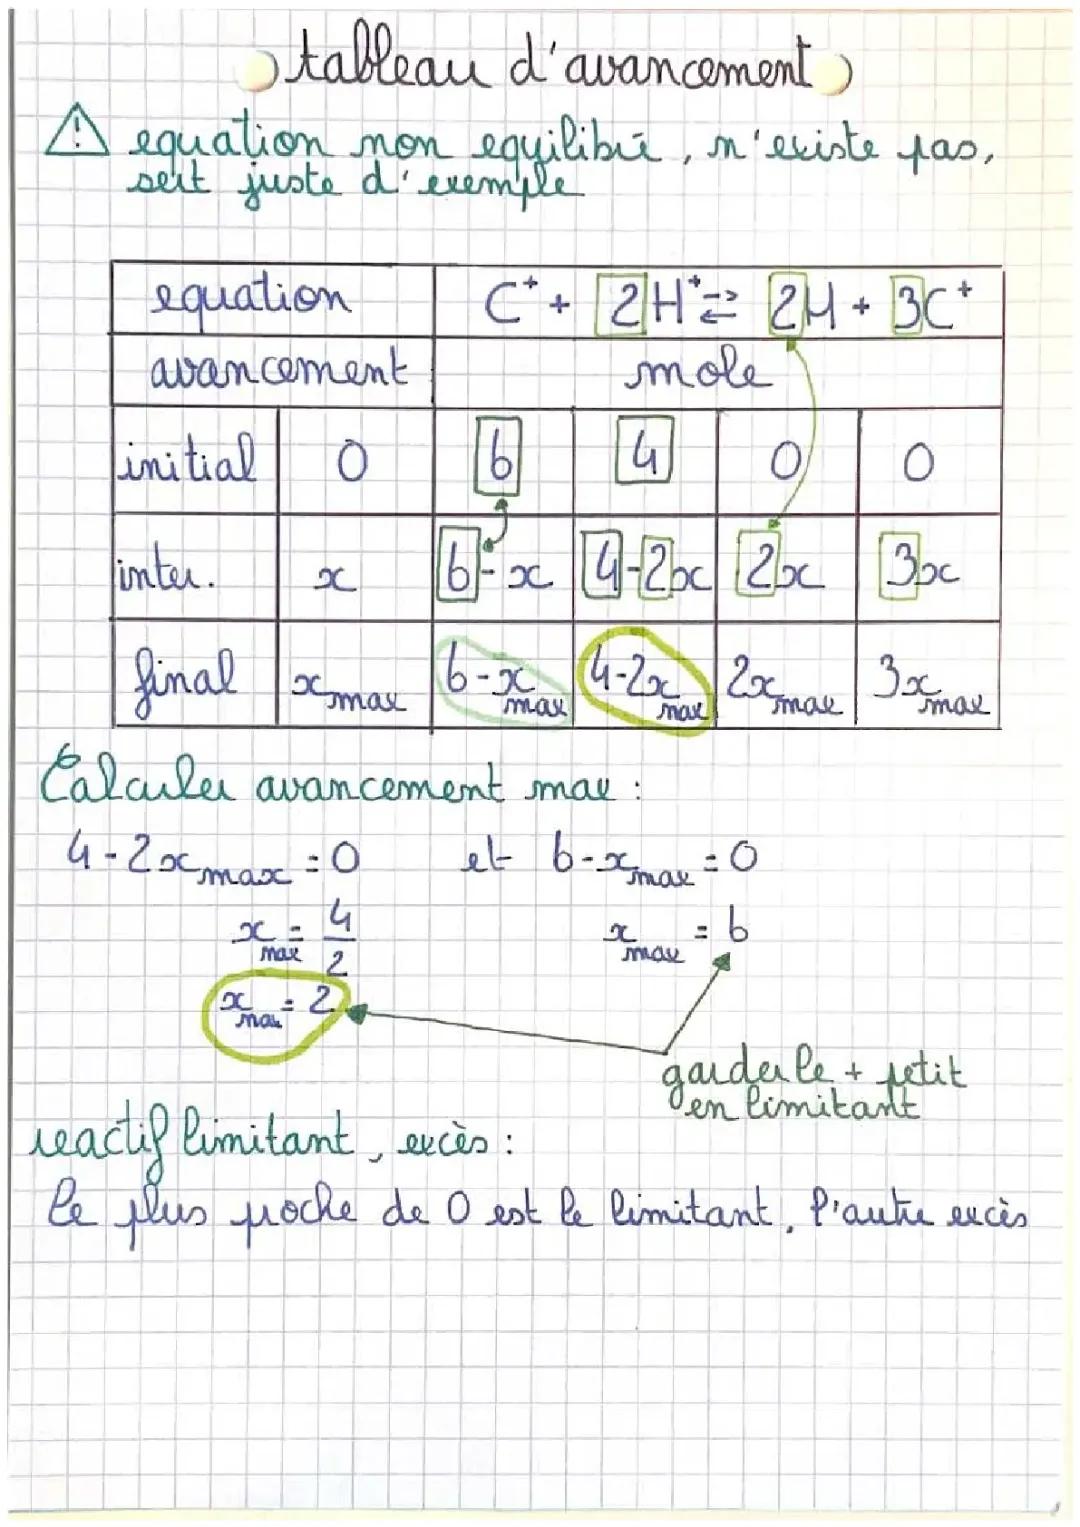 tableau d'avancement
⚠ equation non equilibré, n'existe pas,
sert juste d'exemple
equation C⁺ + 2H⁺ ⇄ 2H + 3C⁺
avancement mole
initial 0 6 4 0 0
inter. x 6-x 4-2x 2x 3x
final xmax 6-xmax 4-2xmax 2xmax 3xmax
Calculer avancement max :
4-2xmax = 0 et 6-xmax = 0
xmax = 4/2 xmax = 6
xmax = 2
garder le + petit
en limitant
reactif limitant, excès :
le plus proche de 0 est le limitant, l'autre excès